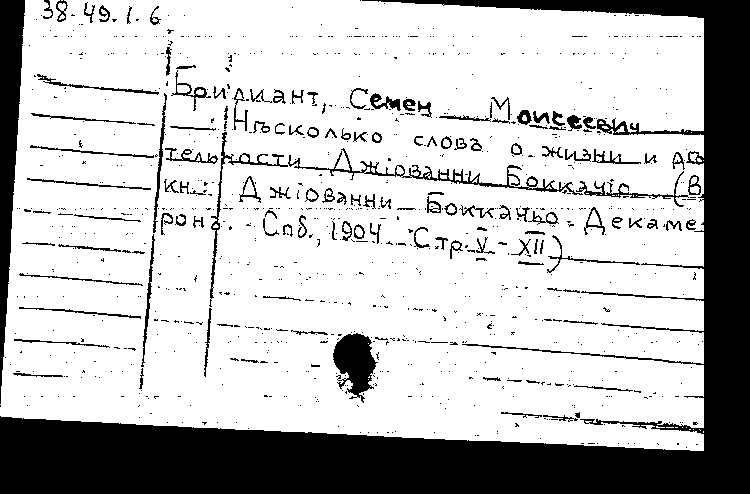 38.49.1.6
Брилиант, Семен Моисеевич
Нѣсколько словъ о жизни и дѣя
тельности Джіованни Боккачіо (В
кн.: Джіованни Боккачьо. Декаме-
ронъ. Спб., 1904 Стр. V - XII)